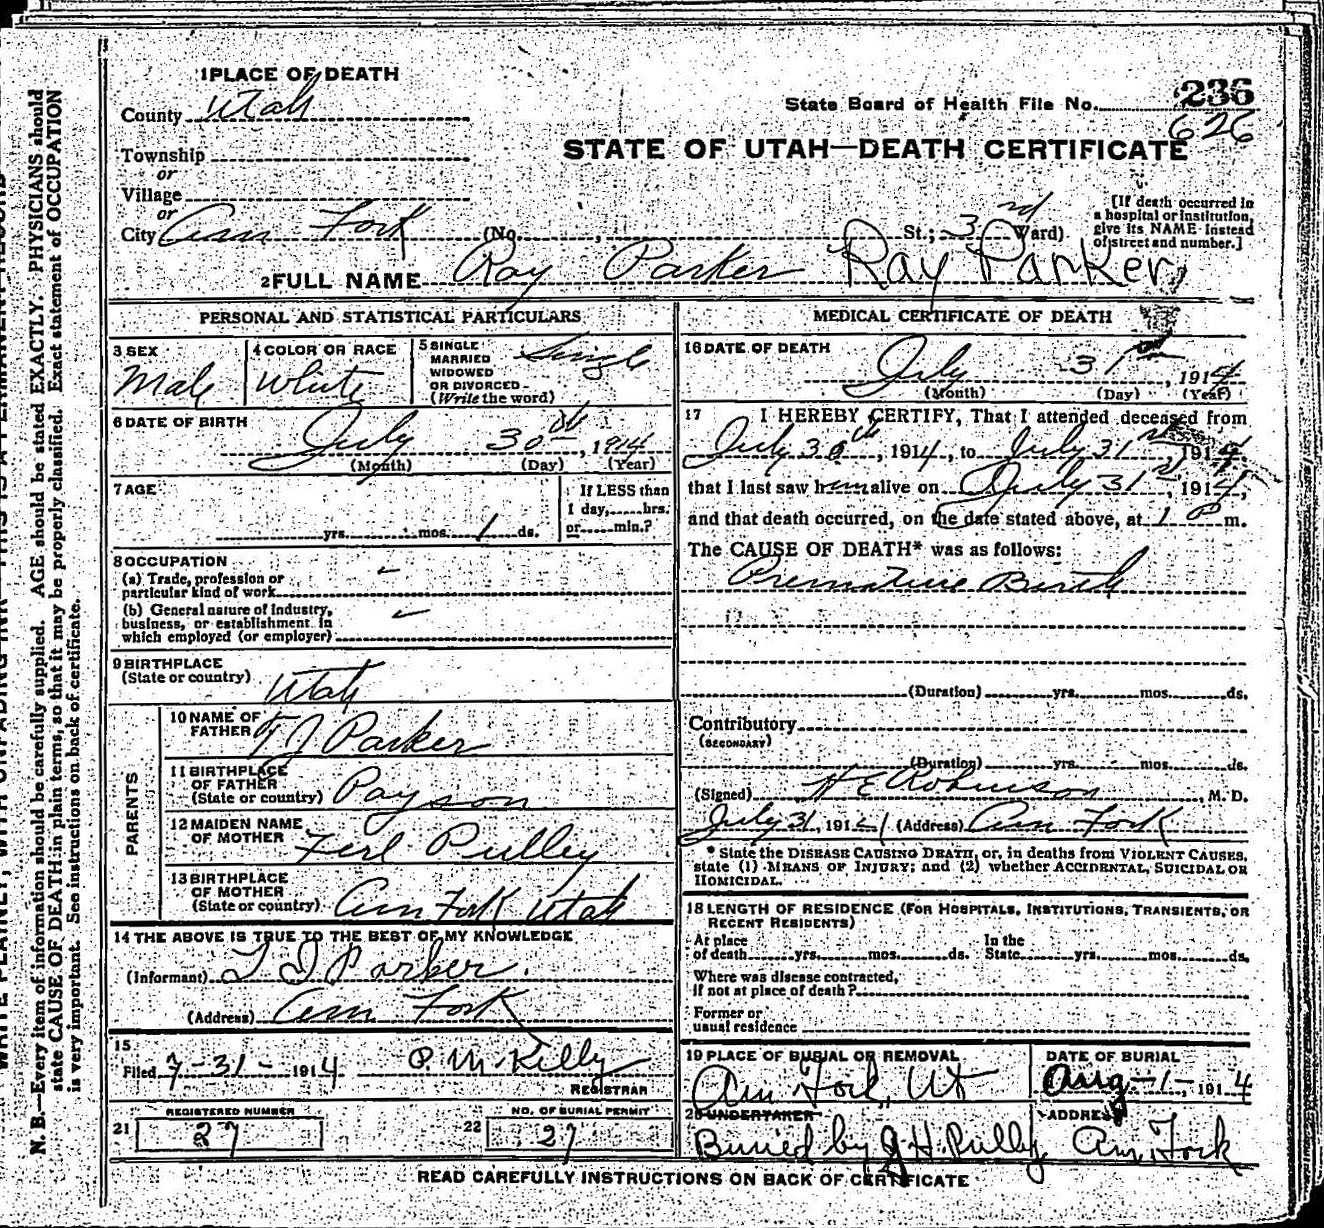 1 PLACE OF DEATH
County Utah
State Board of Health File No. 236
626
Township
or
Village
or
City Am Fork (No. , St.; 3rd Ward)
STATE OF UTAH—DEATH CERTIFICATE
[If death occurred in
a hospital or institution,
give its NAME instead
of street and number.]
2 FULL NAME Ray Parker Ray Parker
PERSONAL AND STATISTICAL PARTICULARS
3 SEX
Male
4 COLOR OR RACE
White
5 SINGLE
MARRIED
WIDOWED
OR DIVORCED
(Write the word)
Single
6 DATE OF BIRTH
July 30th, 1914
(Month) (Day) (Year)
7 AGE
yrs. mos. 1 ds.
If LESS than
1 day, hrs.
or min.?
8 OCCUPATION
(a) Trade, profession or
particular kind of work
(b) General nature of industry,
business, or establishment in
which employed (or employer)
9 BIRTHPLACE
(State or country) Utah
PARENTS
10 NAME OF
FATHER T J Parker
11 BIRTHPLACE
OF FATHER
(State or country) Payson
12 MAIDEN NAME
OF MOTHER Ferl Pulley
13 BIRTHPLACE
OF MOTHER
(State or country) Am Fork Utah
14 THE ABOVE IS TRUE TO THE BEST OF MY KNOWLEDGE
(Informant) T J Parker.
(Address) Am Fork
15
Filed 7-31-1914
REGISTRAR
REGISTERED NUMBER
21 27
NO. OF BURIAL PERMIT
22 27
MEDICAL CERTIFICATE OF DEATH
16 DATE OF DEATH
July 31, 1914
(Month) (Day) (Year)
17 I HEREBY CERTIFY, That I attended deceased from
July 30th, 1914, to July 31, 1914,
that I last saw him alive on July 31, 1914,
and that death occurred, on the date stated above, at 1 P m.
The CAUSE OF DEATH* was as follows:
Premature Birth
(Duration) yrs. mos. ds.
Contributory
(SECONDARY)
(Duration) yrs. mos. ds.
(Signed) H E Robinson, M. D.
July 31, 1914 (Address) Am Fork
* State the DISEASE CAUSING DEATH, or, in deaths from VIOLENT CAUSES,
state (1) MEANS OF INJURY; and (2) whether ACCIDENTAL, SUICIDAL OR
HOMICIDAL.
18 LENGTH OF RESIDENCE (FOR HOSPITALS, INSTITUTIONS, TRANSIENTS, OR
RECENT RESIDENTS)
At place
of death yrs. mos. ds.
In the
State yrs. mos. ds.
Where was disease contracted,
if not at place of death?
Former or
usual residence
19 PLACE OF BURIAL OR REMOVAL
Am Fork, Ut
DATE OF BURIAL
Aug-1-, 1914
20 UNDERTAKER
Buried by J H Pully
ADDRESS
Am Fork
READ CAREFULLY INSTRUCTIONS ON BACK OF CERTIFICATE
N. B.—Every item of information should be carefully supplied. AGE should be stated EXACTLY. PHYSICIANS should
state CAUSE OF DEATH in plain terms, so that it may be properly classified. Exact statement of OCCUPATION
is very important. See instructions on back of certificate.